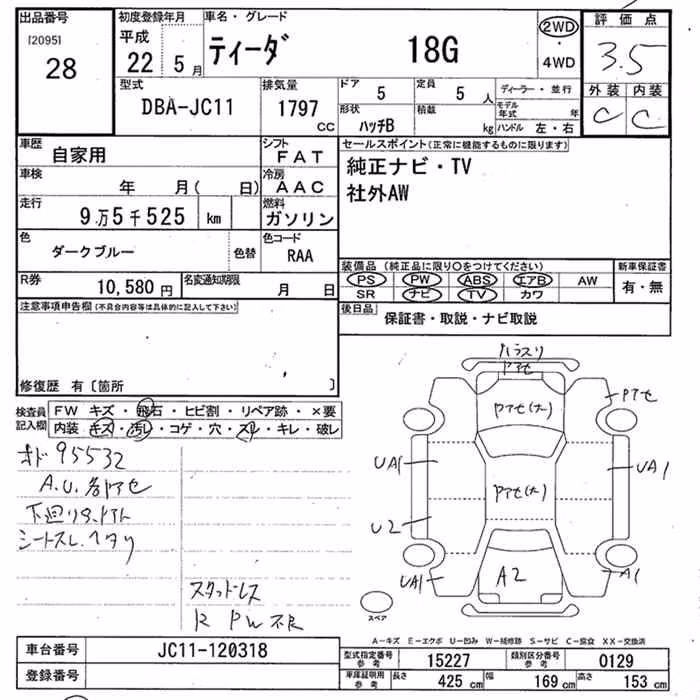 出品番号 初度登録年月 車名・グレード 2WD 評価点
[2095] 平成 ティーダ 18G ・ 3.5
28 22 5月 4WD
型式 排気量 ドア 5 定員 5人 ディーラー・並行 外装 内装
DBA-JC11 1797 cc 形状 ハッチB 積載 kg モデル年式 年 C C
ハンドル 左・右
車歴 自家用 シフト FAT セールスポイント(正常に機能するものに限ります)
車検 年 月( 日) 冷房 AAC 純正ナビ・TV
走行 9万5千525 km 燃料 ガソリン 社外AW
色 ダークブルー 色替 色コード RAA
装備品(純正品に限り〇をつけてください) 新車保証書
R券 10,580円 名変通知期限 月 日 PS PW ABS エアB AW 有・無
SR ナビ TV カワ
注意事項申告欄(不具合内容等は具体的に記入して下さい) 後日品 保証書・取説・ナビ取説
修復歴 有〔箇所 〕
検査員記入欄 FW キズ・飛石・ヒビ割・リペア跡・×要
内装 キズ・汚レ・コゲ・穴・スレ・キレ・破レ
ハラスリ
アセ
Pアセ(大)
Pアセ
オド 95532
UA1 UA1
A.U.各Pアセ
Pアセ(大)
シートスレ.ヘタリ
U2
UA1 A2 A1
スタッドレス
R PW不良
スペア
A-キズ E-エクボ U-凹み W-補修跡 S-サビ C-腐食 XX-交換済
車台番号 JC11-120318 型式指定番号 参考 15227 類別区分番号 参考 0129
登録番号 車庫証明用 参考 長さ 425 cm 幅 169 cm 高さ 153 cm